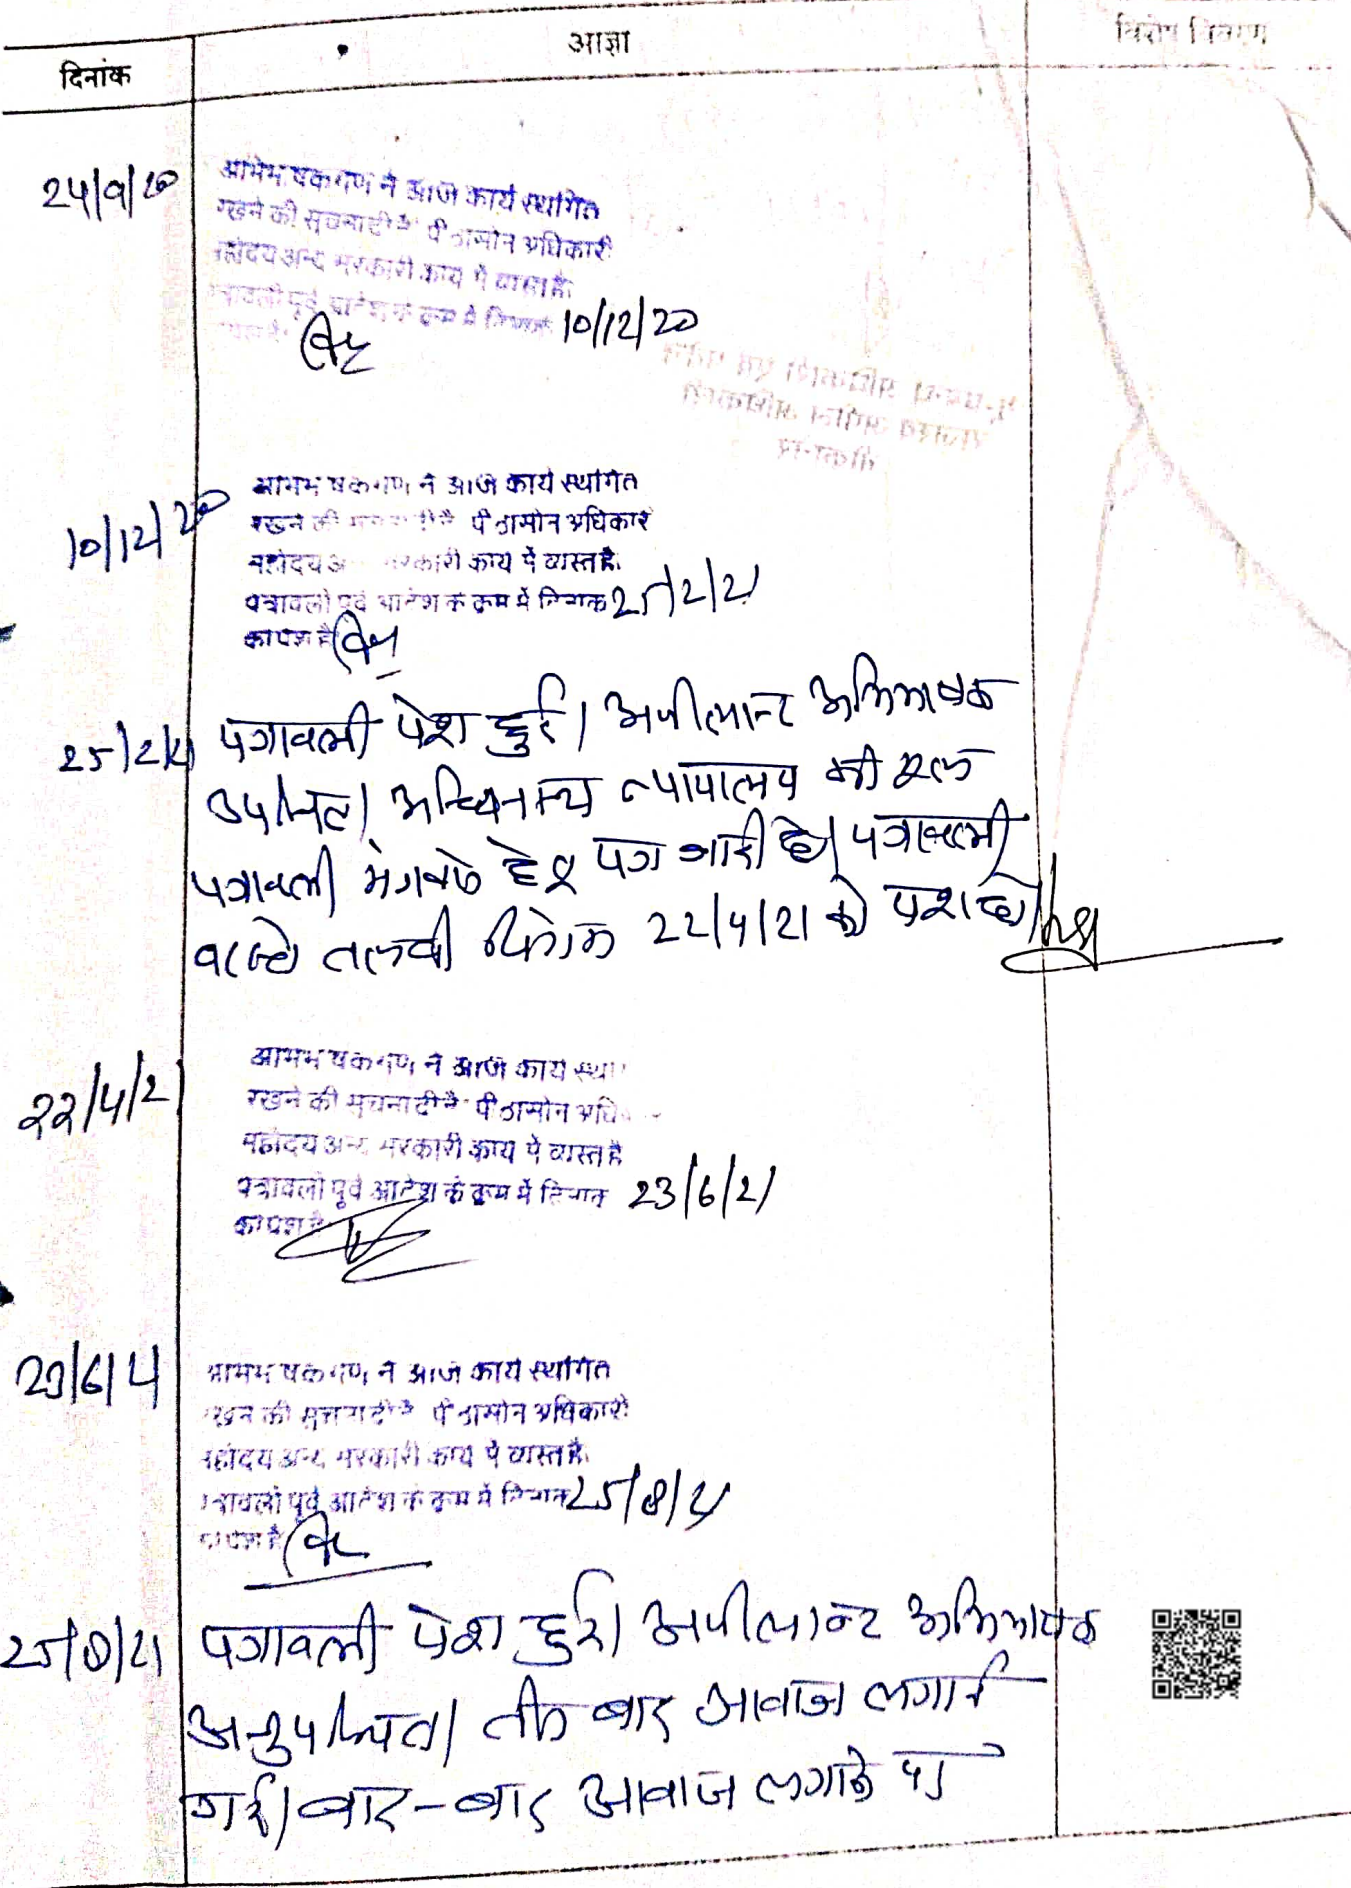 दिनांक
आज्ञा
विशेष विवरण
24/9/20
अभिभाषकगण ने आज कार्य स्थगित
रखने की सूचना दी है पीठासीन अधिकारी
महोदय अन्य सरकारी कार्य में व्यस्त है
पत्रावली पूर्व आदेश के क्रम में दिनांक 10/12/20
10/12/20
अभिभाषकगण ने आज कार्य स्थगित
रखने की सूचना दी है पीठासीन अधिकारी
महोदय अन्य सरकारी कार्य में व्यस्त है
पत्रावली पूर्व आदेश के क्रम में दिनांक 25/2/21
का पेश है
25/2/21
पत्रावली पेश हुई। अपीलान्ट अभिभाषक
उपस्थित। अधिनस्थ न्यायालय की मूल
पत्रावली मंगवाने हेतु पत्र जारी हो। पत्रावली
वास्ते तलबी दिनांक 22/4/21 को पेश हो।
22/4/21
अभिभाषकगण ने आज कार्य
रखने की सूचना दी है पीठासीन
महोदय अन्य सरकारी कार्य में व्यस्त है
पत्रावली पूर्व आदेश के क्रम में दिनांक 23/6/21
का पेश है
23/6/21
अभिभाषकगण ने आज कार्य स्थगित
रखने की सूचना दी है पीठासीन अधिकारी
महोदय अन्य सरकारी कार्य में व्यस्त है
पत्रावली पूर्व आदेश के क्रम में दिनांक 25/8/21
का पेश है
25/8/21
पत्रावली पेश हुई। अपीलान्ट अभिभाषक
अनुपस्थित। तीन बार आवाज लगाई
गई। बार-बार आवाज लगाने पर